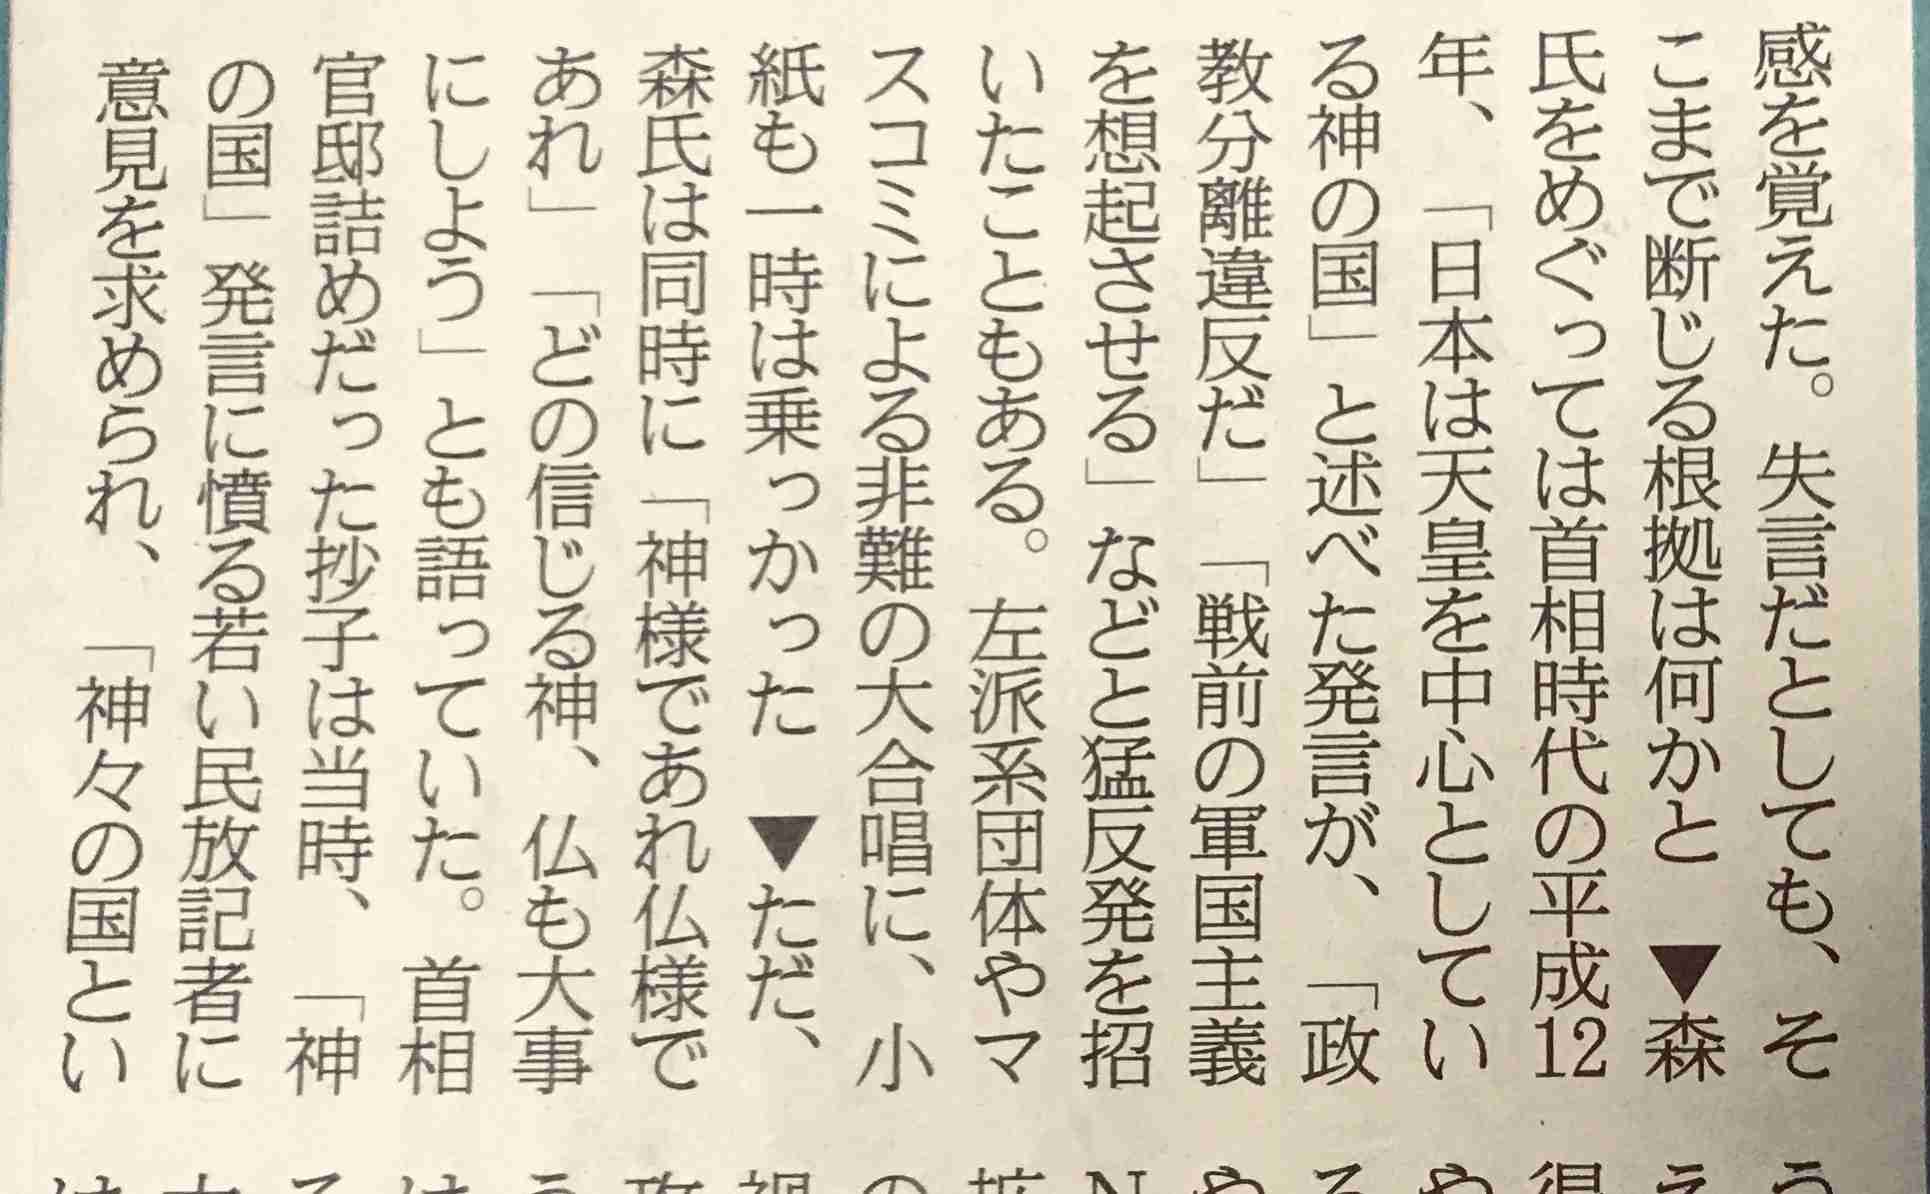 感を覚えた。失言だとしても、そ
こまで断じる根拠は何かと　▼森
氏をめぐっては首相時代の平成12
年、「日本は天皇を中心としてい
る神の国」と述べた発言が、「政
教分離違反だ」「戦前の軍国主義
を想起させる」などと猛反発を招
いたこともある。左派系団体やマ
スコミによる非難の大合唱に、小
紙も一時は乗っかった　▼ただ、
森氏は同時に「神様であれ仏様で
あれ」「どの信じる神、仏も大事
にしよう」とも語っていた。首相
官邸詰めだった抄子は当時、「神
の国」発言に憤る若い民放記者に
意見を求められ、「神々の国とい